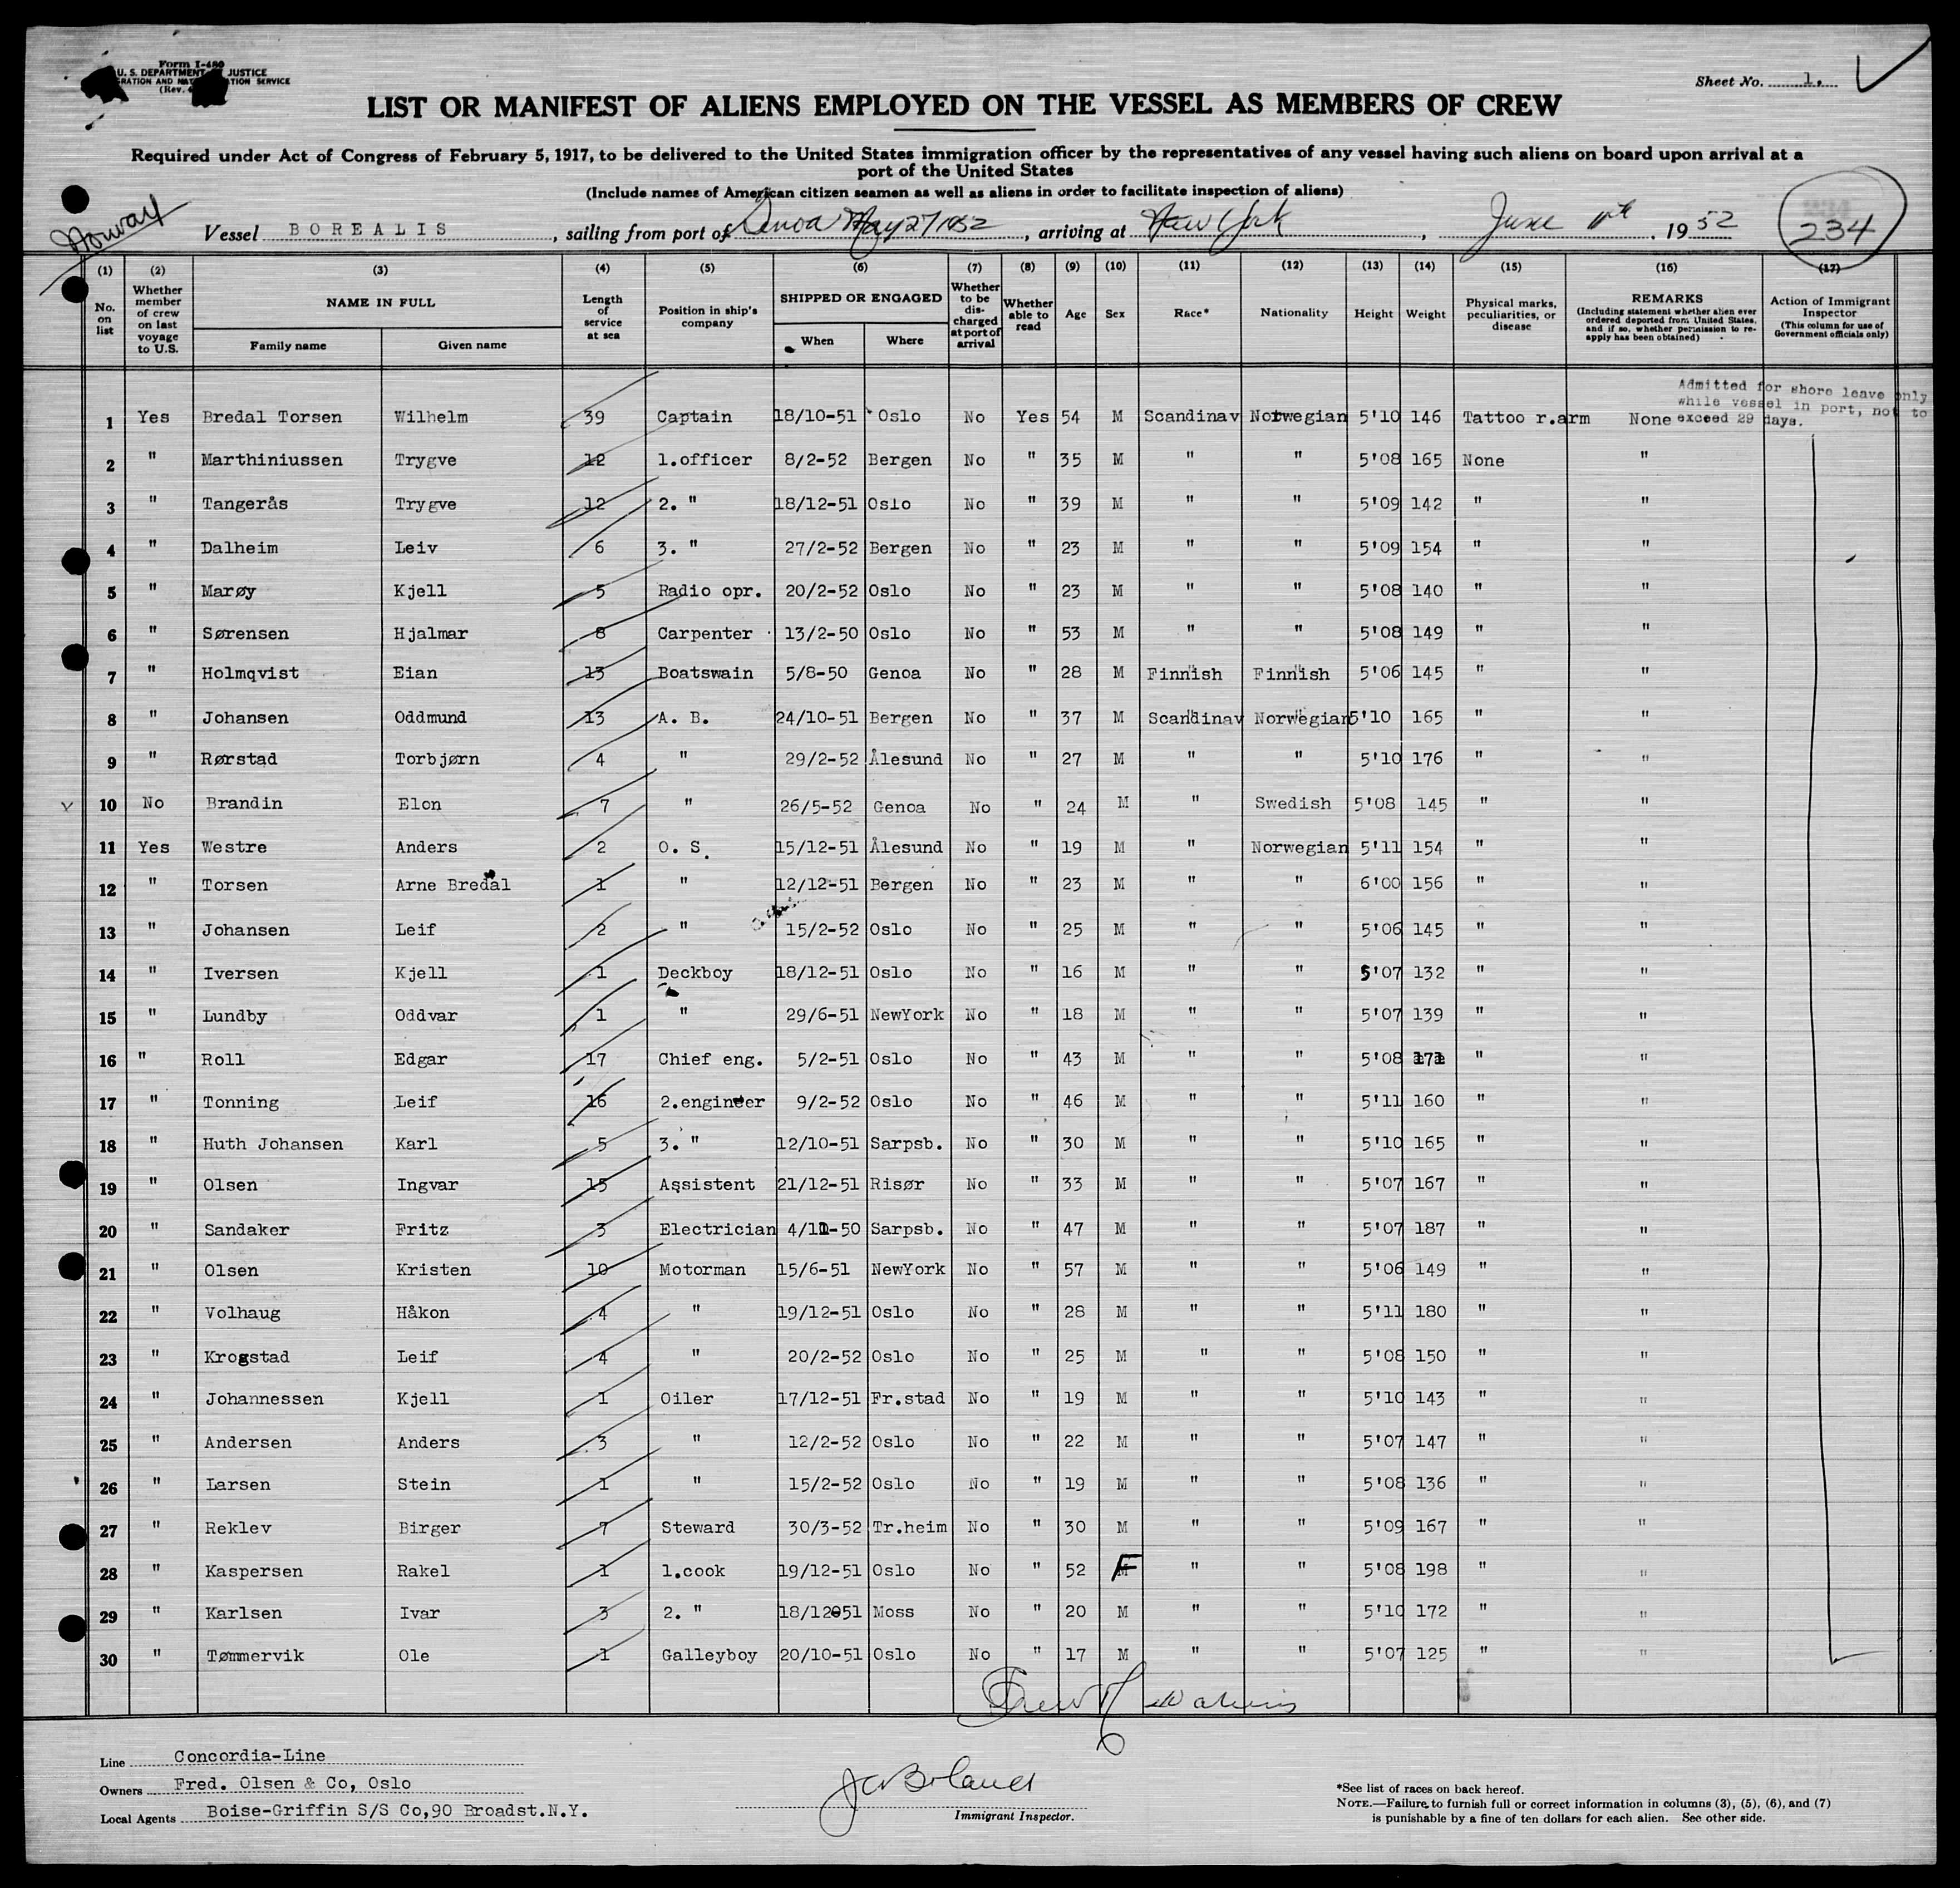 Form I-480
U. S. DEPARTMENT JUSTICE
(Rev.
Sheet No. 1.
LIST OR MANIFEST OF ALIENS EMPLOYED ON THE VESSEL AS MEMBERS OF CREW
Required under Act of Congress of February 5, 1917, to be delivered to the United States immigration officer by the representatives of any vessel having such aliens on board upon arrival at a
port of the United States
(Include names of American citizen seamen as well as aliens in order to facilitate inspection of aliens)
Norway
Vessel BOREALIS, sailing from port of Genoa May 27 1952, arriving at New York, June 11th, 1952
234
(1) (2) (3) (4) (5) (6) (7) (8) (9) (10) (11) (12) (13) (14) (15) (16) (17)
No. on list | Whether member of crew on last voyage to U.S. | NAME IN FULL | Family name | Given name | Length of service at sea | Position in ship's company | SHIPPED OR ENGAGED | When | Where | Whether to be discharged at port of arrival | Whether able to read | Age | Sex | Race* | Nationality | Height | Weight | Physical marks, peculiarities, or disease | REMARKS (Including statement whether alien ever ordered deported from United States, and if so, whether permission to reapply has been obtained) | Action of Immigrant Inspector (This column for use of Government officials only)
Admitted for shore leave only
while vessel in port, not to
exceed 29 days.
1 Yes Bredal Torsen Wilhelm 39 Captain 18/10-51 Oslo No Yes 54 M Scandinav Norwegian 5'10 146 Tattoo r.arm None
2 " Marthiniussen Trygve 12 1.officer 8/2-52 Bergen No " 35 M " " 5'08 165 None "
3 " Tangerås Trygve 12 2. " 18/12-51 Oslo No " 39 M " " 5'09 142 " "
4 " Dalheim Leiv 6 3. " 27/2-52 Bergen No " 23 M " " 5'09 154 " "
5 " Marøy Kjell 5 Radio opr. 20/2-52 Oslo No " 23 M " " 5'08 140 " "
6 " Sørensen Hjalmar 8 Carpenter 13/2-50 Oslo No " 53 M " " 5'08 149 " "
7 " Holmqvist Eian 13 Boatswain 5/8-50 Genoa No " 28 M Finnish Finnish 5'06 145 " "
8 " Johansen Oddmund 13 A. B. 24/10-51 Bergen No " 37 M Scandinav Norwegian 5'10 165 " "
9 " Rørstad Torbjørn 4 " 29/2-52 Ålesund No " 27 M " " 5'10 176 " "
10 No Brandin Elon 7 " 26/5-52 Genoa No " 24 M " Swedish 5'08 145 " "
11 Yes Westre Anders 2 O. S. 15/12-51 Ålesund No " 19 M " Norwegian 5'11 154 " "
12 " Torsen Arne Bredal 1 " 12/12-51 Bergen No " 23 M " " 6'00 156 " "
13 " Johansen Leif 2 " 15/2-52 Oslo No " 25 M " " 5'06 145 " "
14 " Iversen Kjell 1 Deckboy 18/12-51 Oslo No " 16 M " " 5'07 132 " "
15 " Lundby Oddvar 1 " 29/6-51 NewYork No " 18 M " " 5'07 139 " "
16 " Roll Edgar 17 Chief eng. 5/2-51 Oslo No " 43 M " " 5'08 171 " "
17 " Tonning Leif 16 2.engineer 9/2-52 Oslo No " 46 M " " 5'11 160 " "
18 " Huth Johansen Karl 5 3. " 12/10-51 Sarpsb. No " 30 M " " 5'10 165 " "
19 " Olsen Ingvar 15 Assistent 21/12-51 Risør No " 33 M " " 5'07 167 " "
20 " Sandaker Fritz 3 Electrician 4/11-50 Sarpsb. No " 47 M " " 5'07 187 " "
21 " Olsen Kristen 10 Motorman 15/6-51 NewYork No " 57 M " " 5'06 149 " "
22 " Volhaug Håkon 4 " 19/12-51 Oslo No " 28 M " " 5'11 180 " "
23 " Krogstad Leif 4 " 20/2-52 Oslo No " 25 M " " 5'08 150 " "
24 " Johannessen Kjell 1 Oiler 17/12-51 Fr.stad No " 19 M " " 5'10 143 " "
25 " Andersen Anders 3 " 12/2-52 Oslo No " 22 M " " 5'07 147 " "
26 " Larsen Stein 1 " 15/2-52 Oslo No " 19 M " " 5'08 136 " "
27 " Reklev Birger 7 Steward 30/3-52 Tr.heim No " 30 M " " 5'09 167 " "
28 " Kaspersen Rakel 1 1.cook 19/12-51 Oslo No " 52 F " " 5'08 198 " "
29 " Karlsen Ivar 3 2. " 18/12051 Moss No " 20 M " " 5'10 172 " "
30 " Tømmervik Ole 1 Galleyboy 20/10-51 Oslo No " 17 M " " 5'07 125 " "
Line Concordia-Line
Owners Fred. Olsen & Co, Oslo
Local Agents Boise-Griffin S/S Co,90 Broadst.N.Y.
Immigrant Inspector.
*See list of races on back hereof.
NOTE.—Failure to furnish full or correct information in columns (3), (5), (6), and (7)
is punishable by a fine of ten dollars for each alien. See other side.